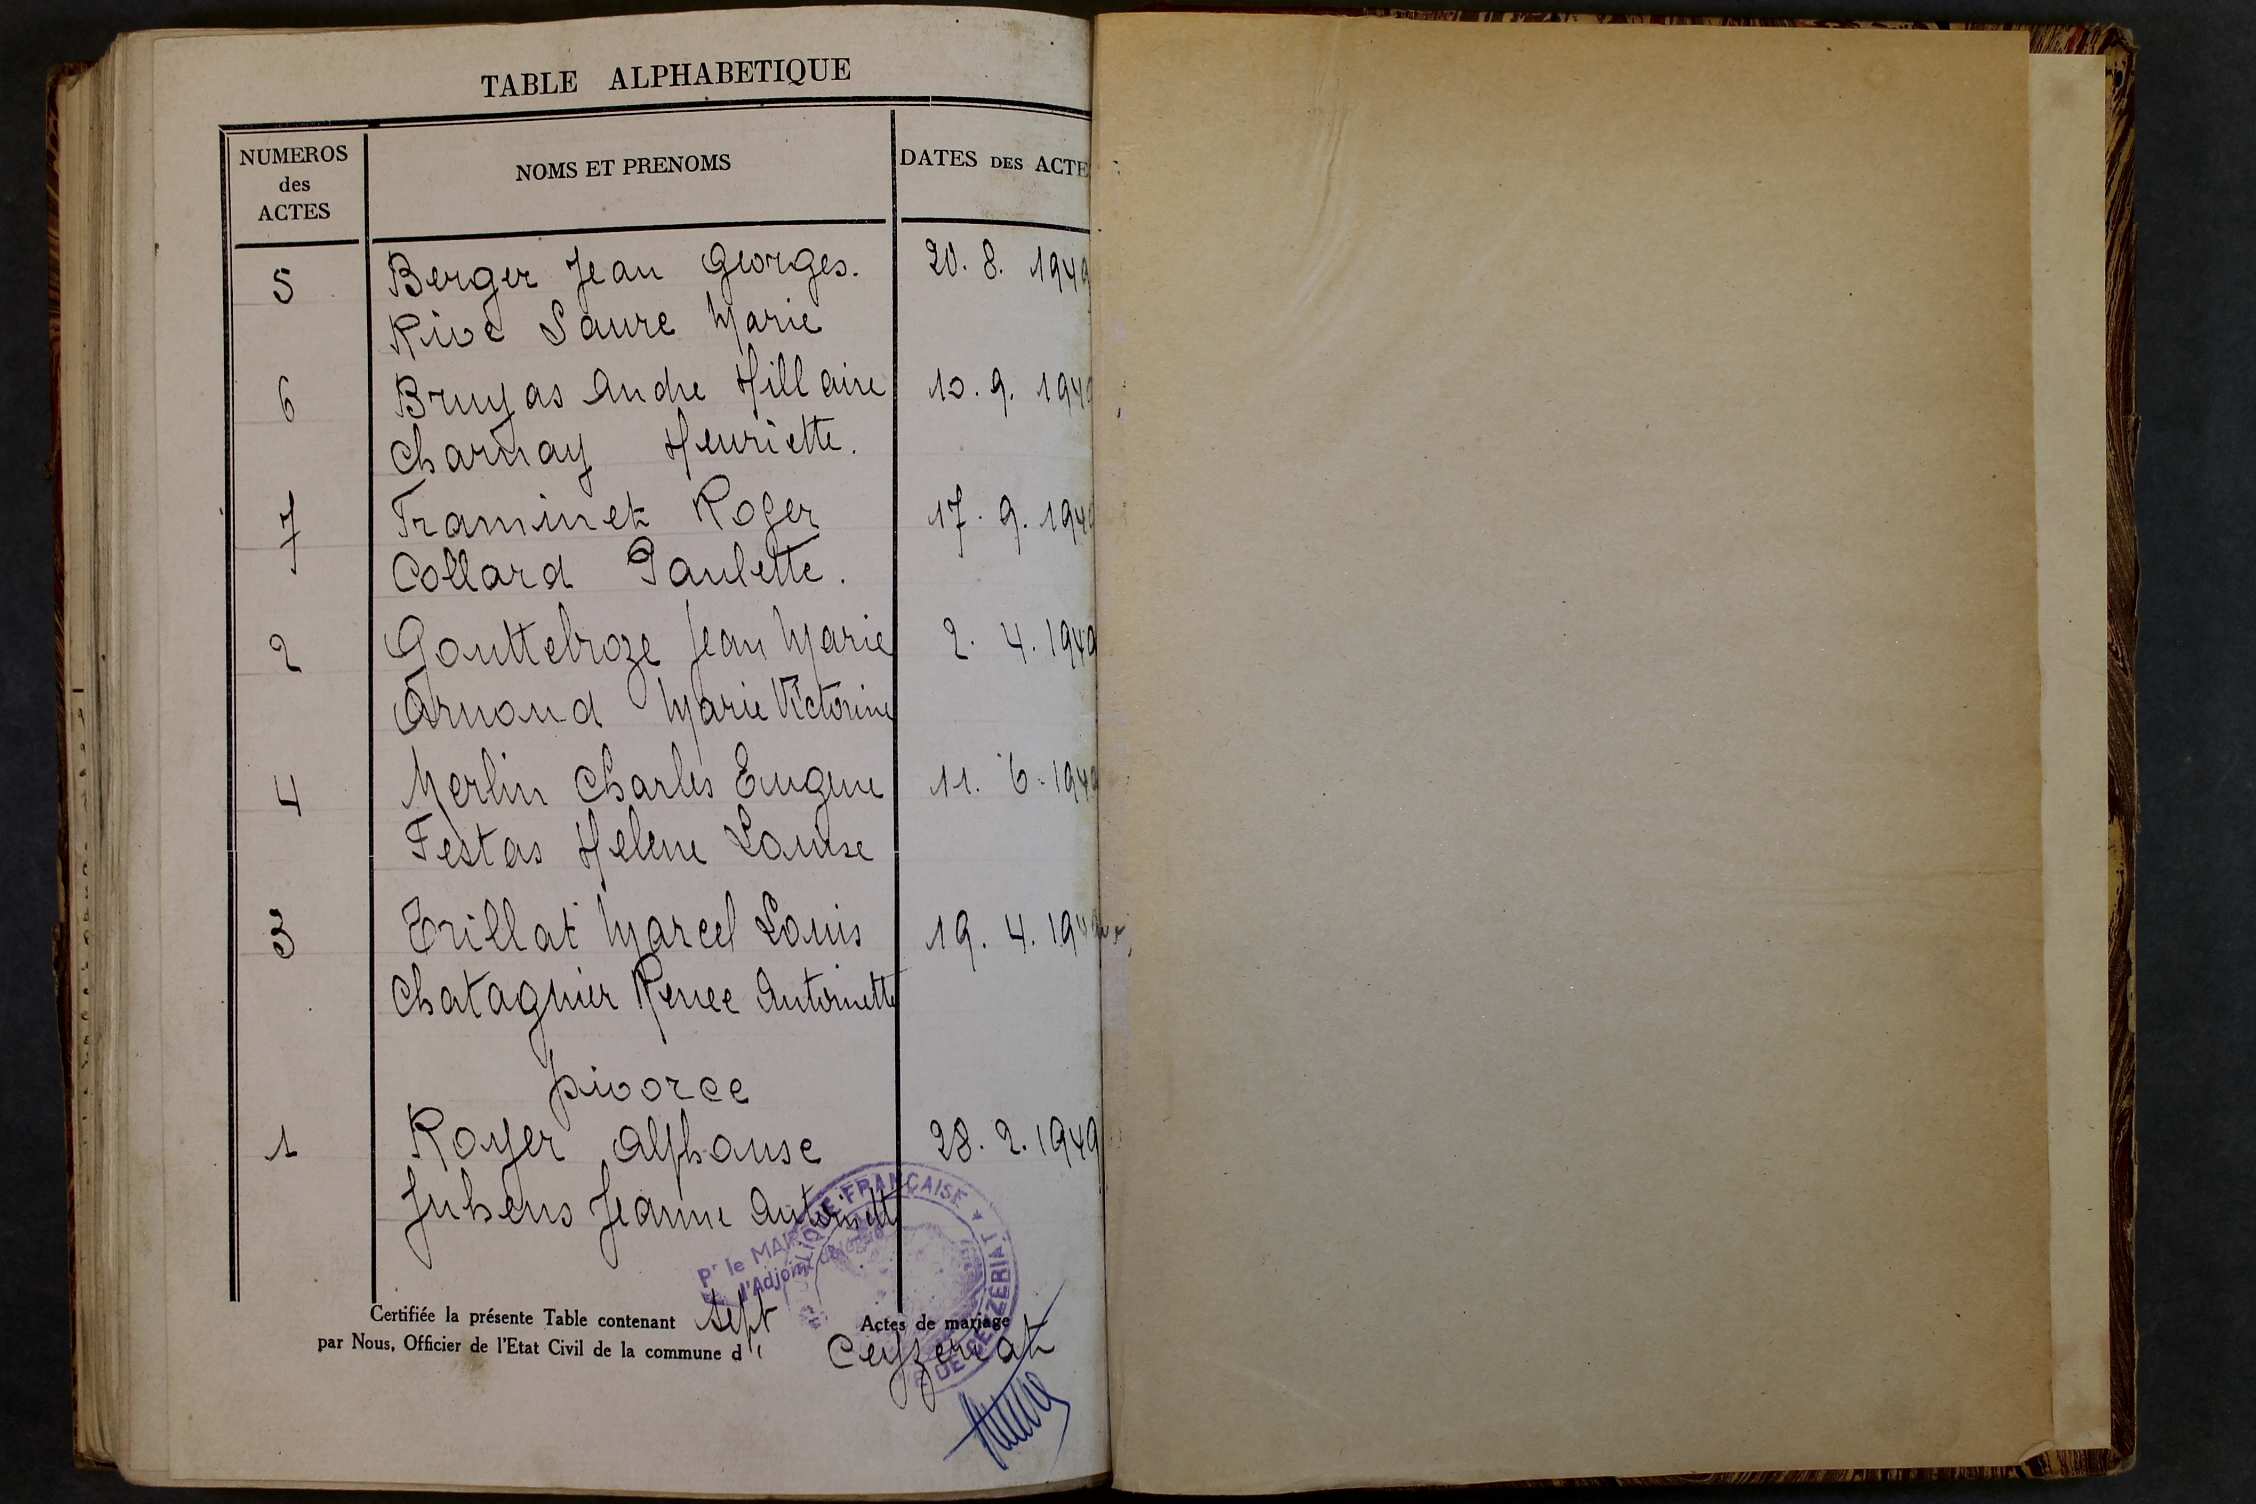 TABLE ALPHABETIQUE
NUMEROS des ACTES
NOMS ET PRENOMS
DATES DES ACTE
5 Berger Jean Georges. 20. 8. 1949
Rive Laure Marie
6 Bruyas Andre Hillaire 10. 9. 1949
Charnay Henriette.
7 Traminet Roger 17. 9. 1949
Collard Paulette.
2 Gouttebroze Jean Marie 2. 4. 1949
Arnaud Marie Victorine
4 Merlin Charles Eugene 11. 6. 1949
Festas Helene Louise
3 Trillat Marcel Louis 19. 4. 194
Chatagnier Renee Antoinette
Divorce
1 Royer Alphonse 28. 2. 1949
Juhens Jeanne Antoinette
Pr le MAIRE
l'Adjoint délégué
FRANÇAISE
DE CEYZERIAT
Certifiée la présente Table contenant sept Actes de mariage
par Nous, Officier de l'Etat Civil de la commune d Ceyzeriat